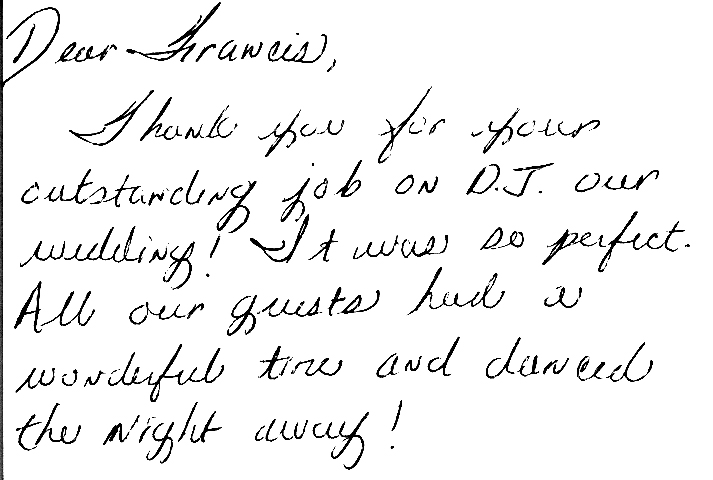 Dear Francis,
Thank you for your
outstanding job on D.J. our
wedding! It was so perfect.
All our guests had a
wonderful time and danced
the night away!